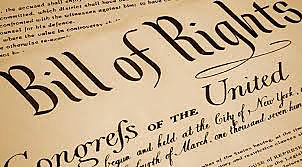 the accused shall enjoy
committed, which district shall have
confronted with the witnesses against him;
counsel for his defence.
where the value in controversy
otherwise
Bill of Rights
Congreſs OF THE United
begun and held at the City of New-York,
fourth of March, one thousand seven hun